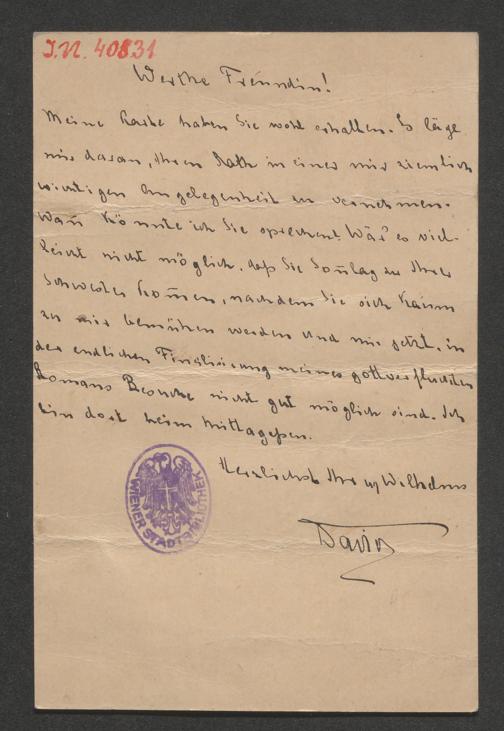 I.N. 40831
Werthe Freundin!
Meine Karte haben Sie wohl erhalten. Es läge
mir daran, Ihren Rath in einer mir ziemlich
wichtigen Angelegenheit zu vernehmen.
Wan̄ könnte ich Sie sprechen? Wär's viel-
leicht nicht möglich, daß Sie Son̄tag zu Ihrer
Schwester kom̄en, nachdem Sie sich kaum
zu mir bemühen werden und mir jetzt, in
der endlichen Finalisirung meines gottverfluchten
Romans Besuche nicht gut möglich sind. Ich
bin dort beim Mittagessen.
Herzlichst Ihr
David
WIENER STADTBIBLIOTHEK